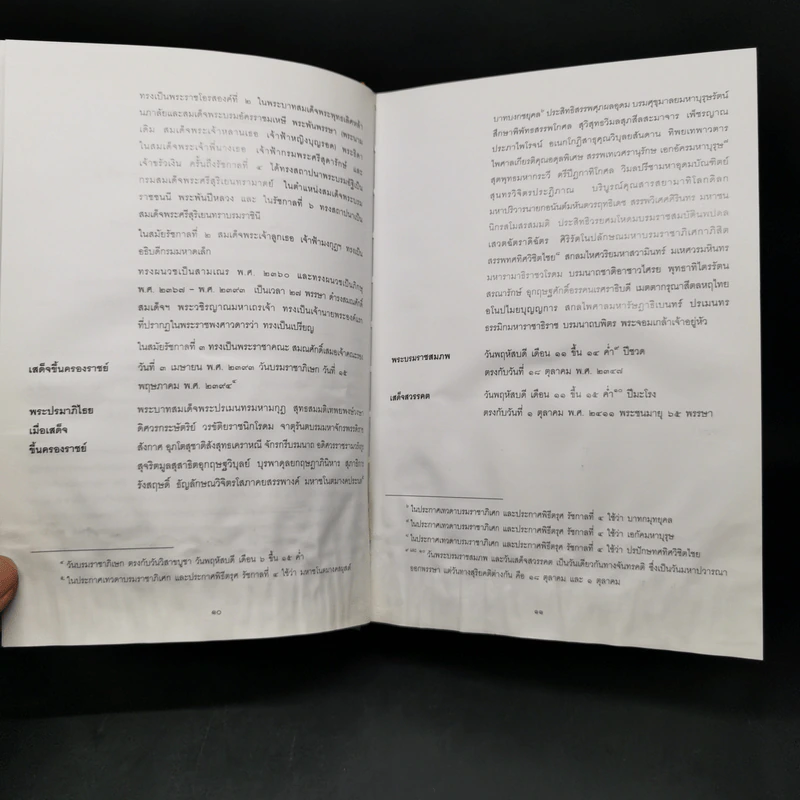 ทรงเป็นพระราชโอรสองค์ที่ ๒ ในพระบาทสมเด็จพระพุทธเลิศหล้า
นภาลัยและสมเด็จพระบรมอัครราชมเหษี พระพันพรรษา (พระนาม
เดิม สมเด็จพระเจ้าหลานเธอ เจ้าฟ้าหญิงบุญรอด) พระธิดา
ในสมเด็จพระเจ้าพี่นางเธอ เจ้าฟ้ากรมพระศรีสุดารักษ์ และ
เจ้าขรัวเงิน ครั้นถึงรัชกาลที่ ๔ ได้ทรงสถาปนาพระบรมอัฐิเป็น
กรมสมเด็จพระศรีสุริเยนทรามาตย์ ในตำแหน่งสมเด็จพระบรม
ราชชนนี พระพันปีหลวง และ ในรัชกาลที่ ๖ ทรงสถาปนาเป็น
สมเด็จพระศรีสุริเยนทราบรมราชินี
ในสมัยรัชกาลที่ ๒ สมเด็จพระเจ้าลูกเธอ เจ้าฟ้ามงกุฎฯ ทรงเป็น
อธิบดีกรมมหาดเล็ก
ทรงผนวชเป็นสามเณร พ.ศ. ๒๓๖๐ และทรงผนวชเป็นภิกษุ
พ.ศ. ๒๓๖๗ – พ.ศ. ๒๓๙๓ เป็นเวลา ๒๗ พรรษา ดำรงสมณศักดิ์
สมเด็จฯ พระวชิรญาณมหาเถรเจ้า ทรงเป็นเจ้านายพระองค์แรก
ที่ปรากฏในพระราชพงศาวดารว่า ทรงเป็นเปรียญ
ในสมัยรัชกาลที่ ๓ ทรงเป็นพระราชาคณะ สมณศักดิ์เสมอเจ้าคณะรอง
เสด็จขึ้นครองราชย์ วันที่ ๓ เมษายน พ.ศ. ๒๓๙๓ วันบรมราชาภิเษก วันที่ ๑๕
พฤษภาคม พ.ศ. ๒๓๙๔
พระปรมาภิไธย พระบาทสมเด็จพระปรเมนทรมหามกุฏ สุทธสมมติเทพยพงษ์
เมื่อเสด็จ ดิศวรกระษัตริย์ วรขัติยราชนิกโรดม จาตุรันตบรมมหาจักรพรรดิราช
ขึ้นครองราชย์ สังกาศ อุภโตสุชาติสังสุทธเคราหณี จักรกรีบรมนาถ อดิศวรราช
สุจริตมูลสุสาธิตอุกฤษฐวิบูลย์ บุรพาดุลยกฤษฎาภินิหาร สุภาธิการ
รังสฤษดิ์ ธัญลักษณวิจิตรโสภาคยสรรพางค์ มหาชโนตมางคประนต
วันบรมราชาภิเษก ตรงกับวันวิสาขบูชา วันพฤหัสบดี เดือน ๖ ขึ้น ๑๕ ค่ำ
ในประกาศเทวดาบรมราชาภิเศก และประกาศพิธีตรุศ รัชกาลที่ ๔ ใช้ว่า
๑๐
บาทบงกชยุคล ประสิทธิสรรพศุภผลอุดม บรมศุขุมาลยมหาบุรุษรัตน์
ศึกษาพิพัทธสรรพโกศล สุวิสุทธวิมลสุภสีลสะมาจาร เพ็ชรญาณ
ประภาไพโรจน์ อเนกโกฏิสาธุคุณวิบุลยสันดาน ทิพยเทพาวตาร
ไพศาลเกียรติคุณอดุลพิเศษ สรรพเทเวศรานุรักษ์ เอกอัครมหาบุรุษ
สุตพุทธมหากระวี ตรีปิฎกาทิโกศล วิมลปรีชามหาอุดมบัณฑิตย์
สุนทรวิจิตรประฏิภาณ บริบูรณ์คุณสารสยามาทิโลกดิลก
มหาปริวารนายกอนันต์มหันตวรฤทธิเดช สรรพวิเศศศิรินทร มหาชน
นิกรสโมสรสมมติ ประสิทธิวรยศมโหดมบรมราชสมบัตินพปดล
เสวตฉัตราดิฉัตร ศิริรัตโนปลักษณมหาบรมราชาภิเศกาภิสิต
สรรพทศทิศวิชิตไชย สกลมไหศวริยมหาสวามินทร์ มเหศวรมหินทร
มหารามาธิราชวโรดม บรมนาถชาติอาชาวไศรย พุทธาทิไตรรัตน
สรณารักษ์ อุกฤษฐศักดิ์อรรคนเรศราธิบดี เมตตากรุณาสีตลหฤไทย
อโนปไมยบุญญการ สกลไพศาลมหารัษฎาธิเบนทร์ ปรเมนทร
ธรรมิกมหาราชาธิราช บรมนาถบพิตร พระจอมเกล้าเจ้าอยู่หัว
พระบรมราชสมภพ วันพฤหัสบดี เดือน ๑๑ ขึ้น ๑๔ ค่ำ ปีชวด
ตรงกับวันที่ ๑๘ ตุลาคม พ.ศ. ๒๓๔๗
เสด็จสวรรคต วันพฤหัสบดี เดือน ๑๑ ขึ้น ๑๕ ค่ำ ปีมะโรง
ตรงกับวันที่ ๑ ตุลาคม พ.ศ. ๒๔๑๑ พระชนมายุ ๖๕ พรรษา
ในประกาศเทวดาบรมราชาภิเศก และประกาศพิธีตรุศ รัชกาลที่ ๔ ใช้ว่า บาทกมุทยุคล
ในประกาศเทวดาบรมราชาภิเศก และประกาศพิธีตรุศ รัชกาลที่ ๔ ใช้ว่า เอกัคมหาบุรุษ
ในประกาศเทวดาบรมราชาภิเศก และประกาศพิธีตรุศ รัชกาลที่ ๔ ใช้ว่า ปรปักษทศทิศวิชิตไชย
วันพระบรมราชสมภพ และวันเสด็จสวรรคต เป็นวันเดียวกันทางจันทรคติ ซึ่งเป็นวันมหาปวารณา
ออกพรรษา แต่วันทางสุริยคติต่างกัน คือ ๑๘ ตุลาคม และ ๑ ตุลาคม
๑๑